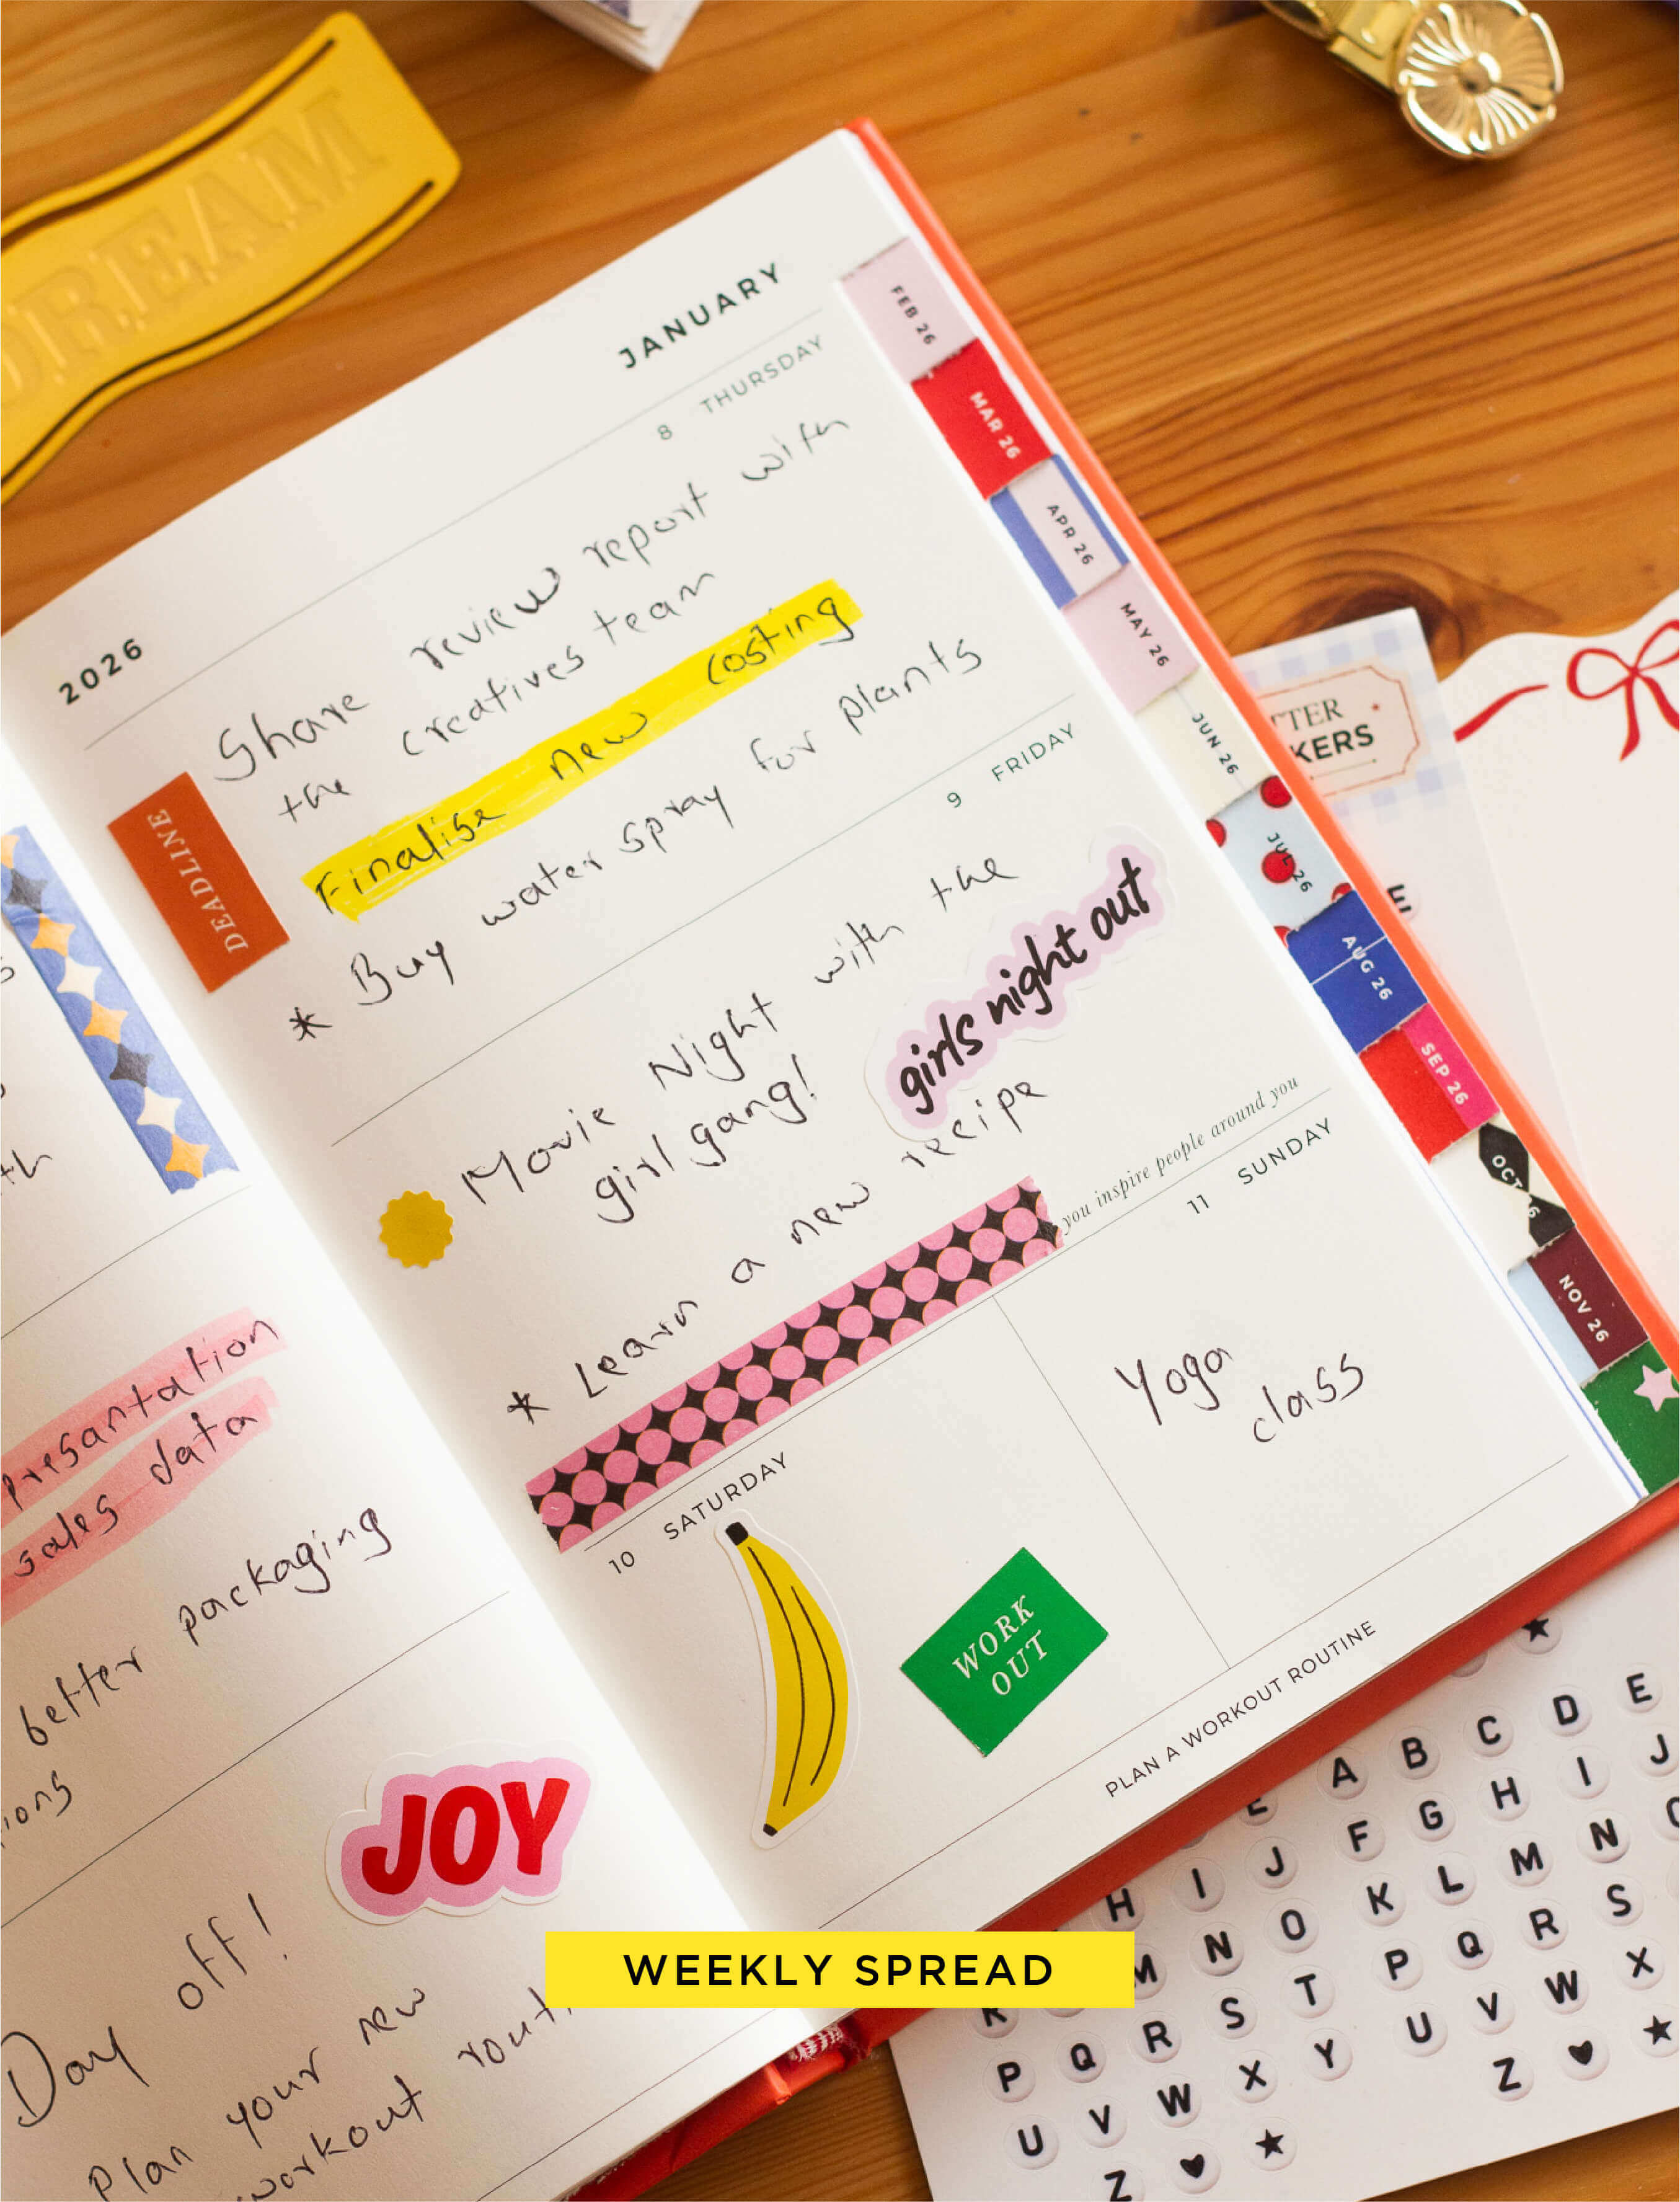 DREAM
2026
JANUARY
8 THURSDAY
Share review report with
the creatives team
Finalise new costing
DEADLINE
* Buy water spray for plants
9 FRIDAY
Movie Night with the
girl gang!
girls night out
* Learn a new recipe
you inspire people around you
10 SATURDAY
WORK
OUT
11 SUNDAY
Yoga
class
PLAN A WORKOUT ROUTINE
FEB 26
MAR 26
APR 26
MAY 26
JUN 26
JUL 26
AUG 26
SEP 26
OCT
NOV 26
presantation
sales data
better packaging
ions
JOY
Day off!
Plan your new
workout
WEEKLY SPREAD
TTER
KERS
E
A B C D E
H I J F G H I J
M N O K L M N
R S T P Q R S
P Q R U V W X
U V W X Y Z ♥ ★
Z ♥ ★